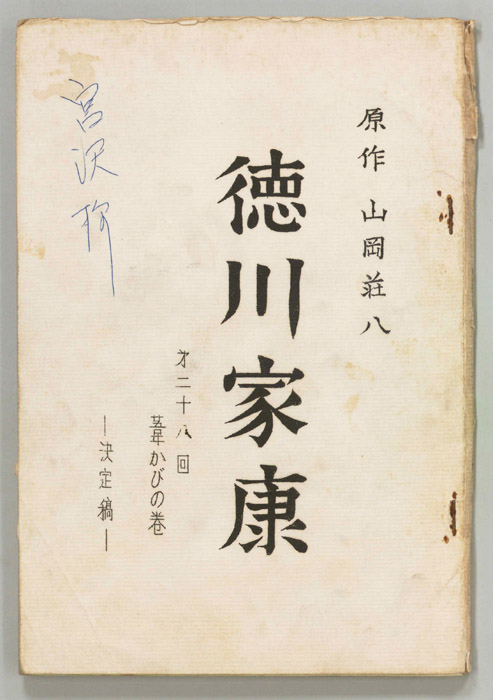 原作 山岡荘八
徳川家康
才二十八回
葦かびの巻
―決定稿―
宮沢